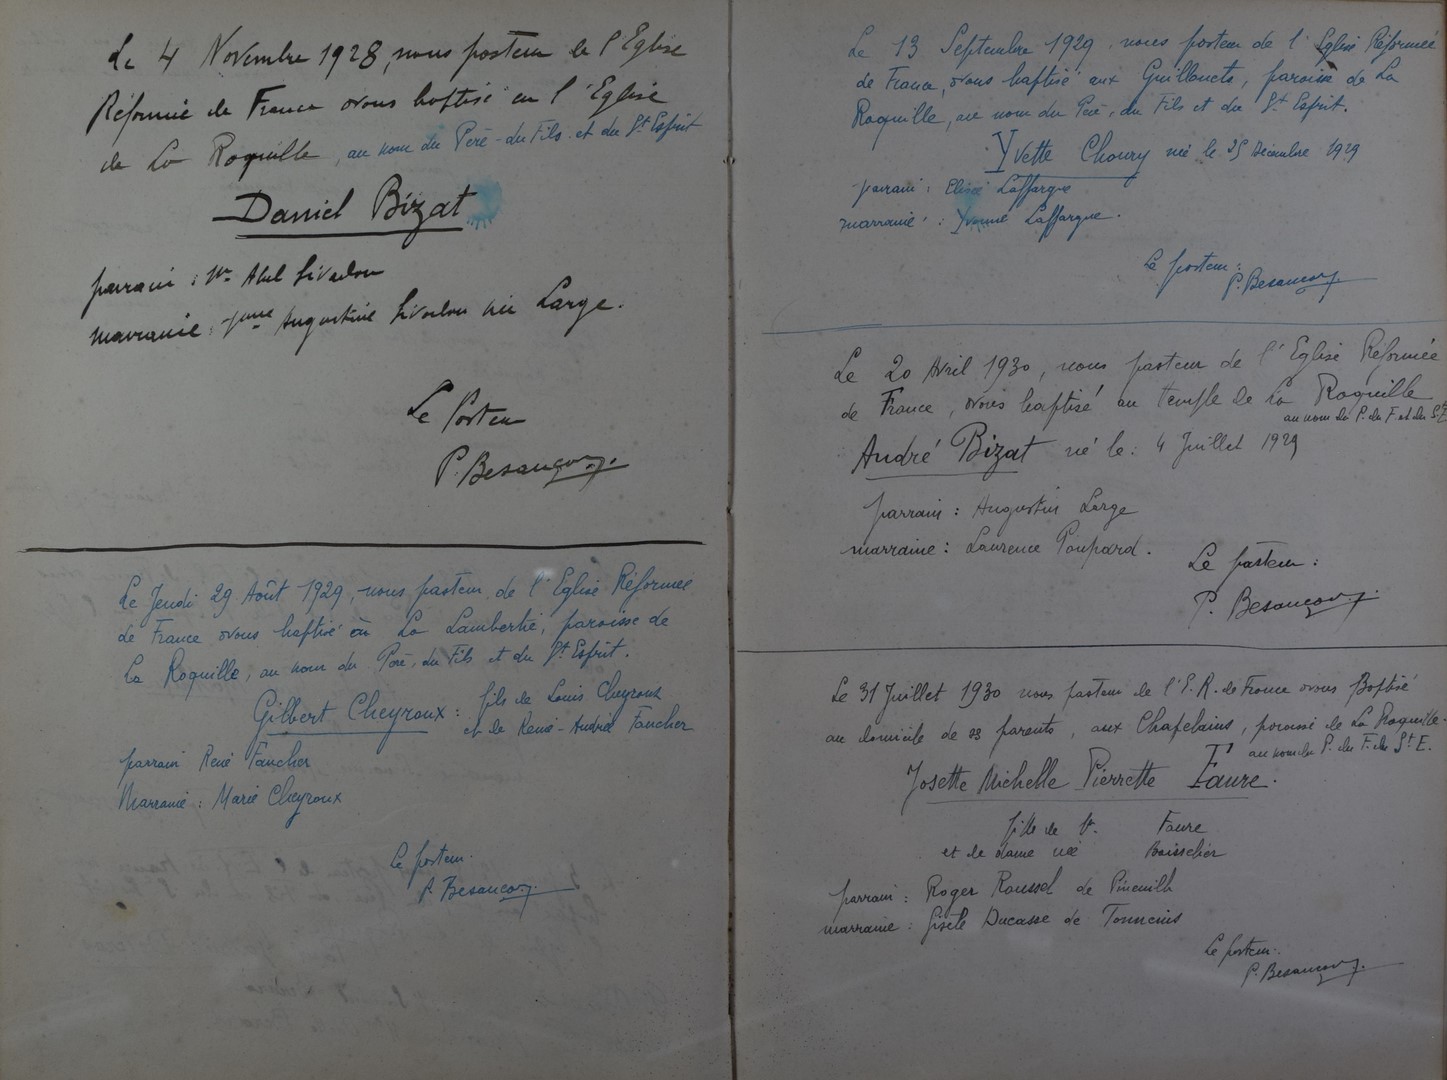 Le 4 Novembre 1928, nous pasteur de l'Eglise
Réformée de France avons baptisé en l'Eglise
de La Roquille, au nom du Père - du Fils et du St Esprit
Daniel Bizat
parrain : Mr Abel Sivadon
marraine : Mme Augustine Sivadon née Large.
Le Pasteur
P. Besançon.
Le Jeudi 29 Août 1929, nous pasteur de l'Eglise Réformée
de France avons baptisé à La Lambertie, paroisse de
La Roquille, au nom du Père, du Fils et du St Esprit.
Gilbert Cheyroux : fils de Louis Cheyroux
et de René-Andréa Faucher
parrain René Faucher
Marraine : Marie Cheyroux
Le pasteur.
P. Besançon.
Le 13 Septembre 1929, nous pasteur de l'Eglise Réformée
de France, avons baptisé aux Guillonets, paroisse de La
Roquille, au nom du Père, du Fils et du St Esprit.
Yvette Choury née le 25 Décembre 1929
parrain : Elisée Laffargue
marraine : Yvonne Laffargue.
Le pasteur :
P. Besançon
Le 20 Avril 1930, nous pasteur de l'Eglise Réformée
de France, avons baptisé au temple de La Roquille
au nom du P. du F. et du St E
André Bizat né le : 4 Juillet 1929
parrain : Augustin Large
marraine : Laurence Poupard.
Le pasteur :
P. Besançon.
Le 31 Juillet 1930 nous pasteur de l'E. R. de France avons Baptisé
au domicile de ses parents, aux Chapelains, paroisse de La Roquille.
au nom du P. du F. du St E.
Josette Michelle Pierrette Faure.
fille de Mr. Faure
et de dame née Boisselier
parrain : Roger Roussel de Pineuilh
marraine : Gisèle Ducasse de Tonneins
Le pasteur.
P. Besançon.